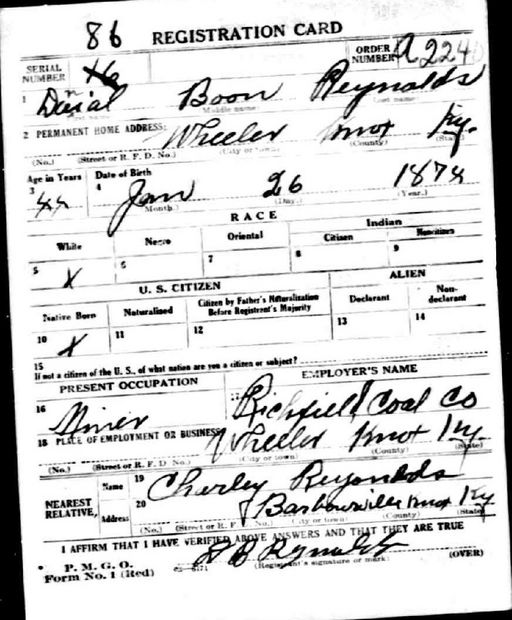 86 REGISTRATION CARD
SERIAL NUMBER
ORDER NUMBER A 224
1 Boon Reynolds
Middle name Last name
2 PERMANENT HOME ADDRESS: Wheeler Knox Ky.
(No.) (Street or R. F. D. No.) (City or town) (County) (State)
Age in Years Date of Birth
3 44 4 Jan 26 1874
(Month.) (Day.) (Year.)
RACE
White Negro Oriental Indian
Citizen Noncitizen
5 X 6 7 8 9
U. S. CITIZEN ALIEN
Native Born Naturalized Citizen by Father's Naturalization Before Registrant's Majority Declarant Non-declarant
10 X 11 12 13 14
15 If not a citizen of the U. S., of what nation are you a citizen or subject?
PRESENT OCCUPATION EMPLOYER'S NAME
16 Miner Richfield Coal Co
18 PLACE OF EMPLOYMENT OR BUSINESS Wheeler Knox Ky
(No.) (Street or R. F. D. No.) (City or town) (County) (State)
NEAREST RELATIVE, Name 19 Charley Reynolds
Address 20 Barbourville Knox Ky
(No.) (Street or R. F. D. No.) (City or town) (County) (State)
I AFFIRM THAT I HAVE VERIFIED ABOVE ANSWERS AND THAT THEY ARE TRUE
P. M. G. O.
Form No. 1 (Red) D B Reynolds
(Registrant's signature or mark) (OVER)